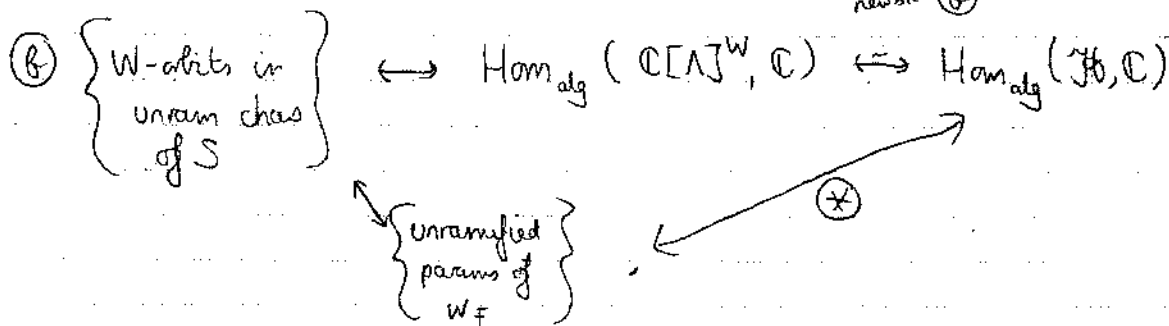 { W-orbits in unram chas of S } ↔ Hom_alg ( ℂ[Λ]^W, ℂ ) ↔ Hom_alg (ℋ, ℂ)
⊛
{ unramified params of W_F } .